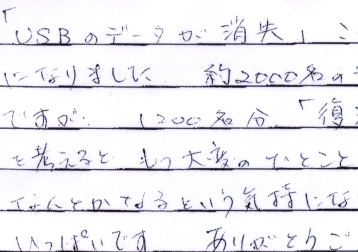 「USBのデータが消失」こ
になりました 約2000名の
ですが、1200名分「復
を考えると もう大変のひとこと
なんとかなるという気持にな
いっぱいです ありがとうご